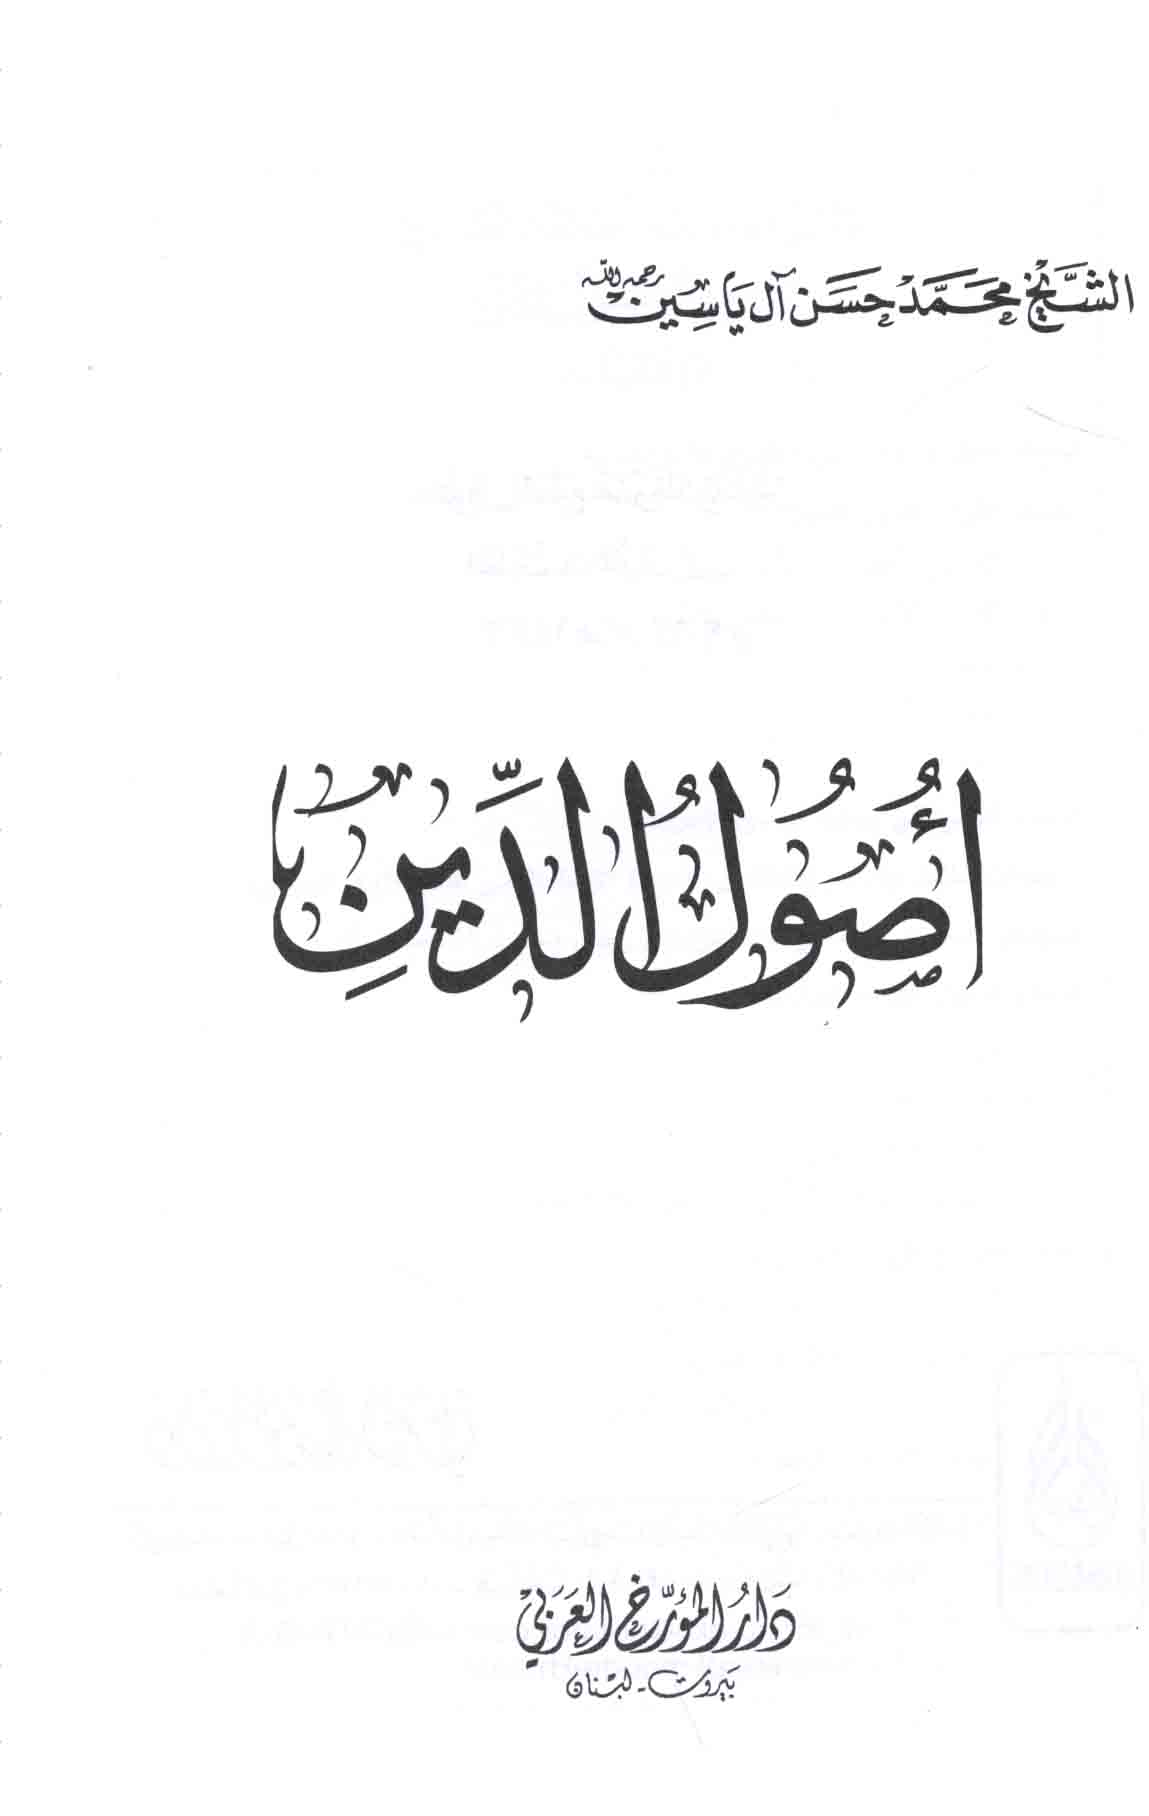 الشَّيْخ مُحَمَّد حَسَن آل يَاسِين رحمه الله
أُصُولُ الدِّينِ
دَارُ المُؤَرِّخِ العَرَبِيّ
بَيْرُوت - لبْنَان